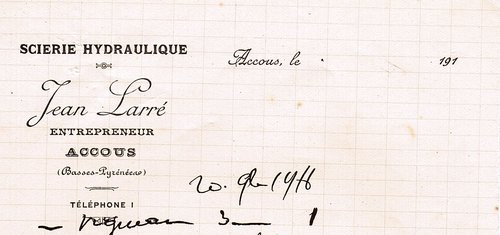 SCIERIE HYDRAULIQUE
Accous, le 191
Jean Larré
ENTREPRENEUR
ACCOUS
(Basses-Pyrénées)
TÉLÉPHONE 1
20.
3 1